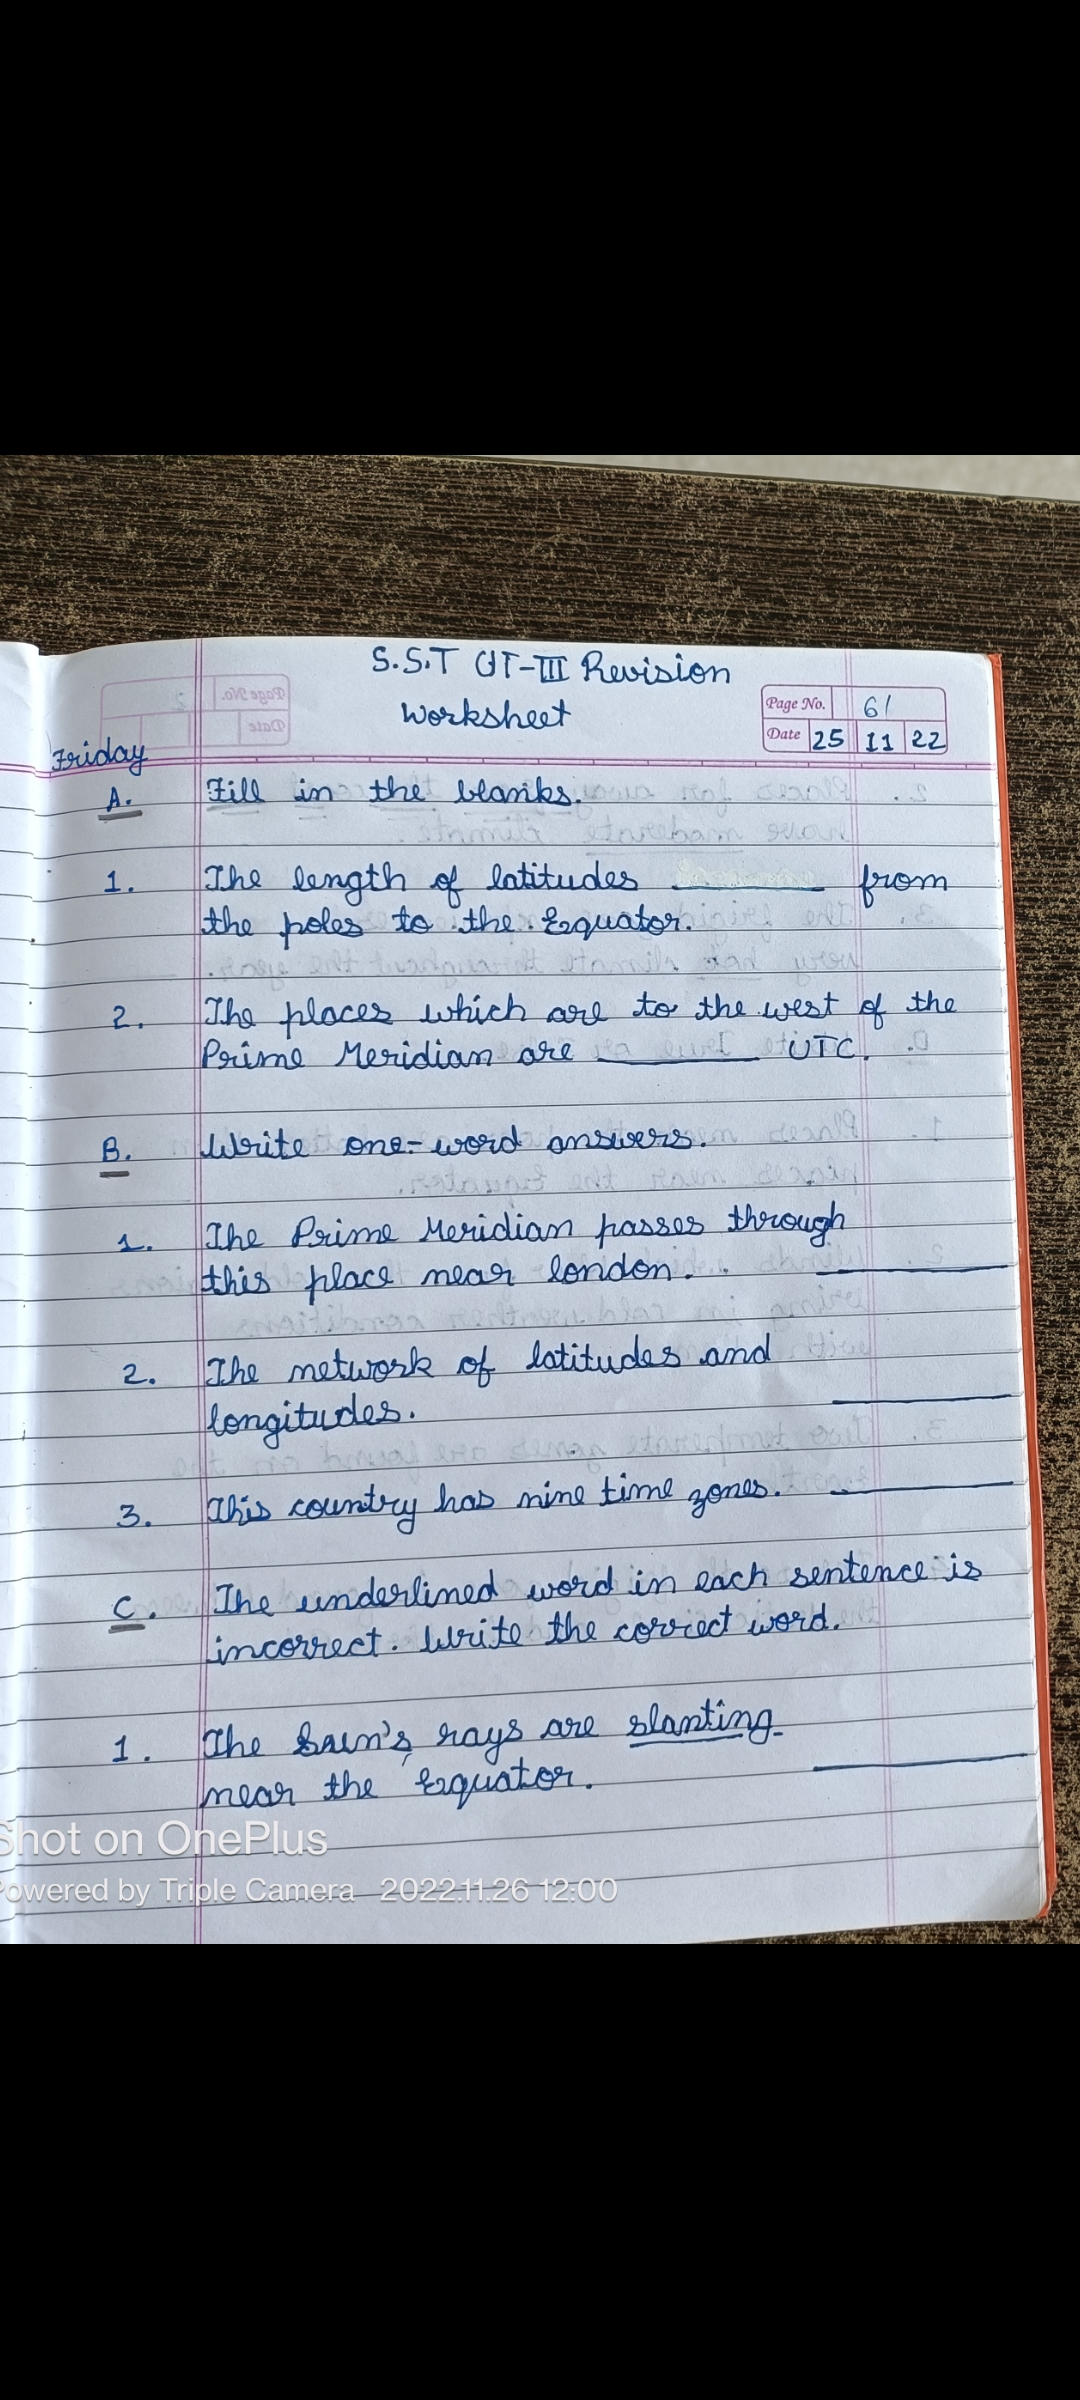 S.S.T UT-III Revision
Worksheet
Page No. 61
Date 25 11 22
Friday
A. Fill in the blanks.
1. The length of latitudes ________ from
the poles to the Equator.
2. The places which are to the west of the
Prime Meridian are ________ UTC.
B. Write one-word answers.
1. The Prime Meridian passes through
this place near london. ________
2. The network of latitudes and
longitudes. ________
3. This country has nine time zones. ________
C. The underlined word in each sentence is
incorrect. Write the correct word.
1. The Sun's rays are slanting
near the Equator. ________
Shot on OnePlus
Powered by Triple Camera 2022.11.26 12:00